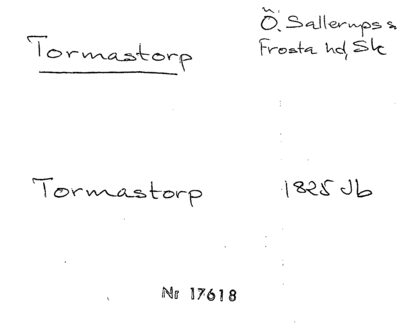 Tormastorp
Ö. Sallerups s
Frosta hd, Sk
Tormastorp 1825 Jb
Nr 17618